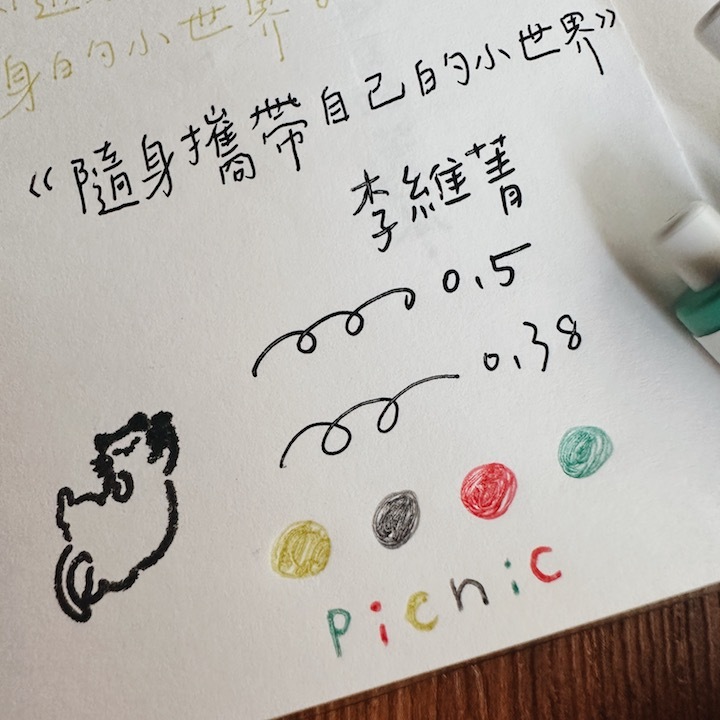 身的小世界。
《隨身攜帶自己的小世界》
李維菁
0.5
0.38
Picnic